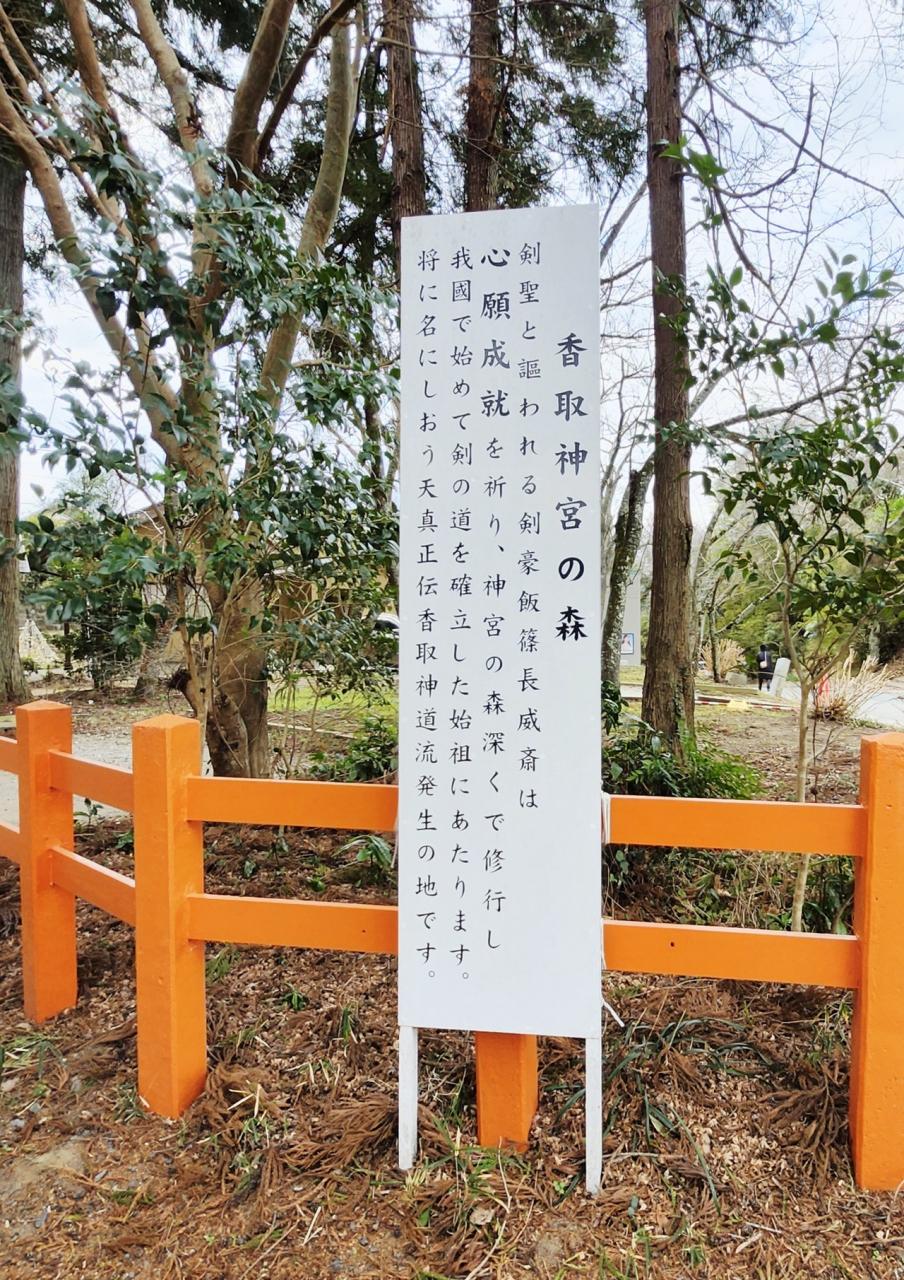 香取神宮の森
剣聖と謳われる剣豪飯篠長威斎は
心願成就を祈り、神宮の森深くで修行し
我國で始めて剣の道を確立した始祖にあたります。
将に名にしおう天真正伝香取神道流発生の地です。